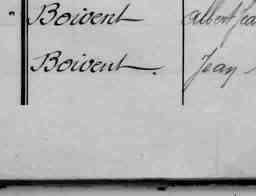 " Boivent Albert Jea
Boivent. Jean